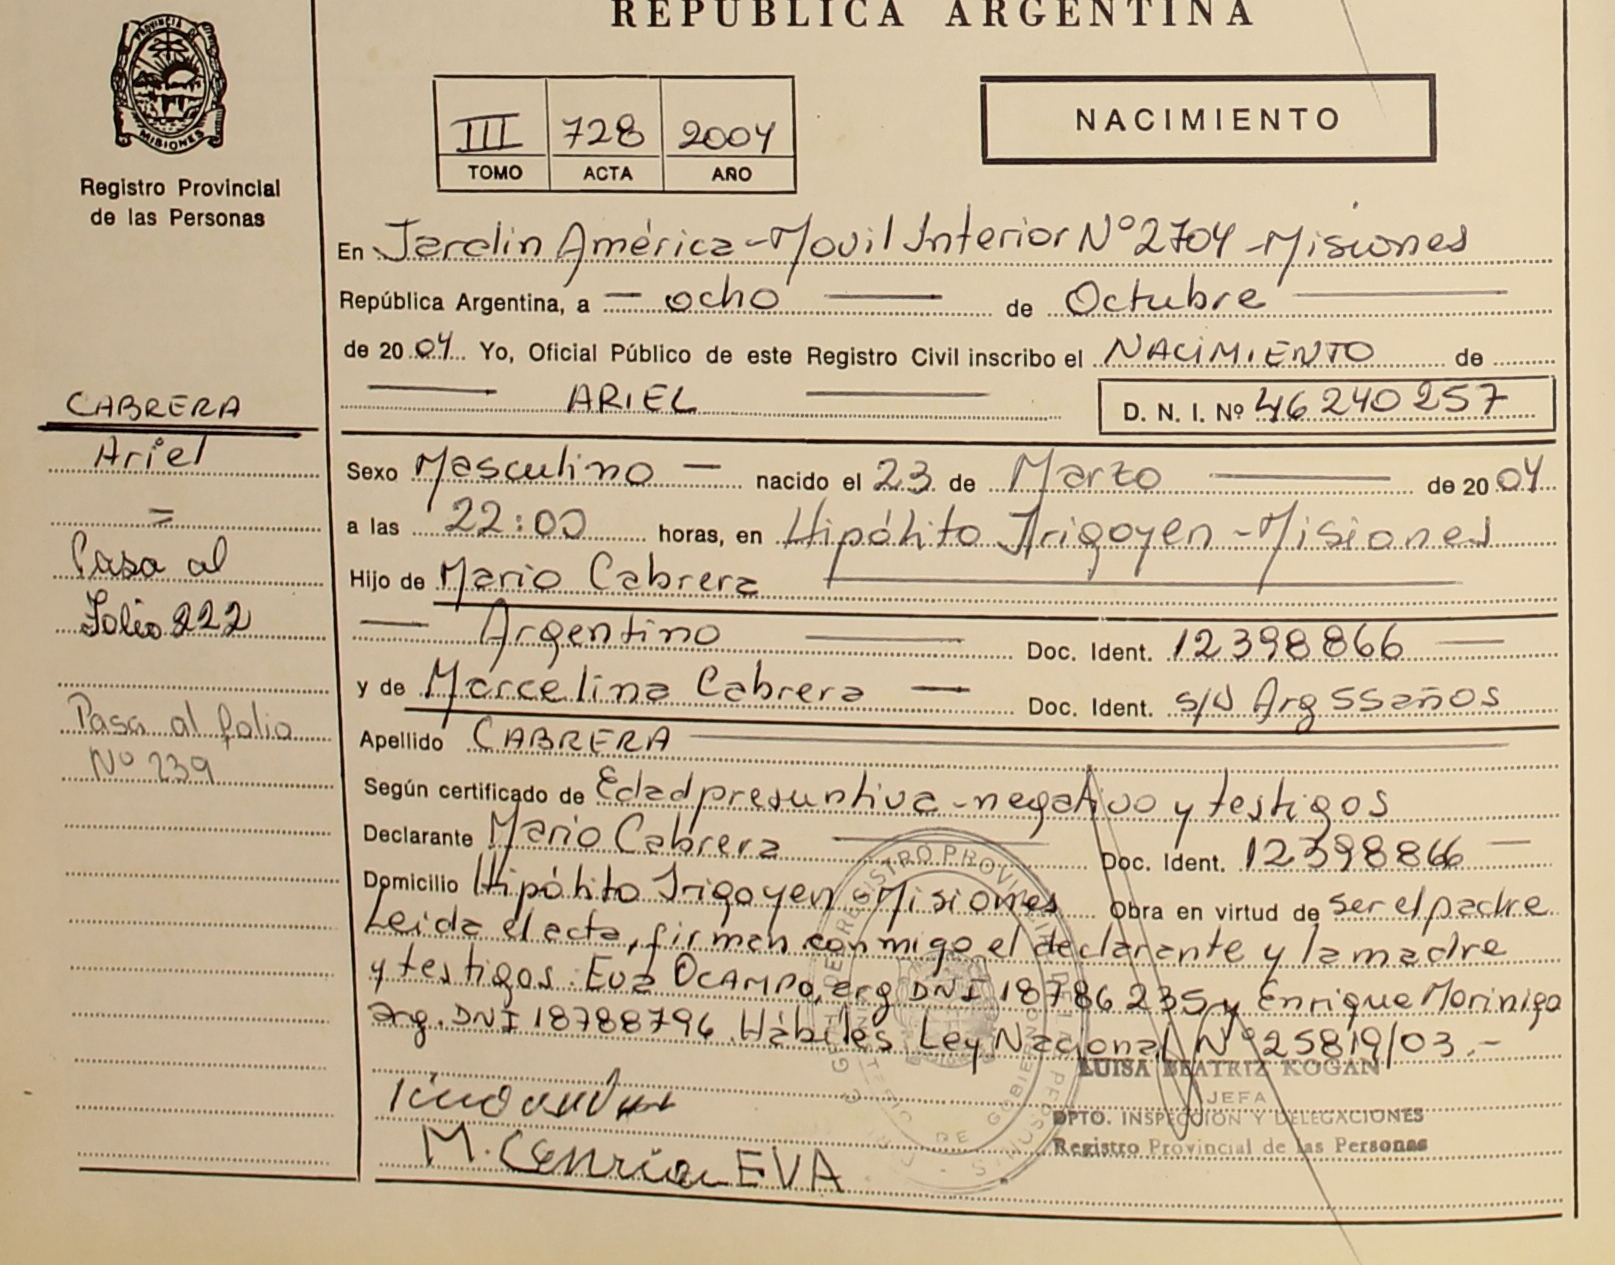 REPUBLICA ARGENTINA
PROVINCIA DE
MISIONES
Registro Provincial
de las Personas
III 728 2004
TOMO ACTA AÑO
NACIMIENTO
En Jardin América - Movil Interior Nº 2704 - Misiones
República Argentina, a — ocho — de Octubre —
de 20 04 Yo, Oficial Público de este Registro Civil inscribo el NACIMIENTO de
— ARIEL — D. N. I. Nº 46240257
CABRERA
Ariel
=
Pasa al
Folio 222
Pasa al folio
Nº 239
Sexo Masculino — nacido el 23 de Marzo — de 20 04
a las 22:00 horas, en Hipólito Irigoyen - Misiones
Hijo de Mario Cabrera —
— Argentino — Doc. Ident. 12398866 —
y de Marcelina Cabrera — Doc. Ident. s/d Arg 55 años
Apellido CABRERA —
Según certificado de Edad presuntiva - negativo y testigos
Declarante Mario Cabrera — Doc. Ident. 12398866 —
Domicilio Hipólito Irigoyen - Misiones Obra en virtud de ser el padre
Leida el acta, firman conmigo el declarante y la madre
y testigos: Eva OCAMPO, arg DNI 18786235 y Enrique Moriniga
arg. DNI 18788796. Hábiles Ley Nacional Nº 25819/03.-
LUISA BEATRIZ KOGAN
JEFA
DPTO. INSPECCION Y DELEGACIONES
Registro Provincial de las Personas
M. Enrique EVA